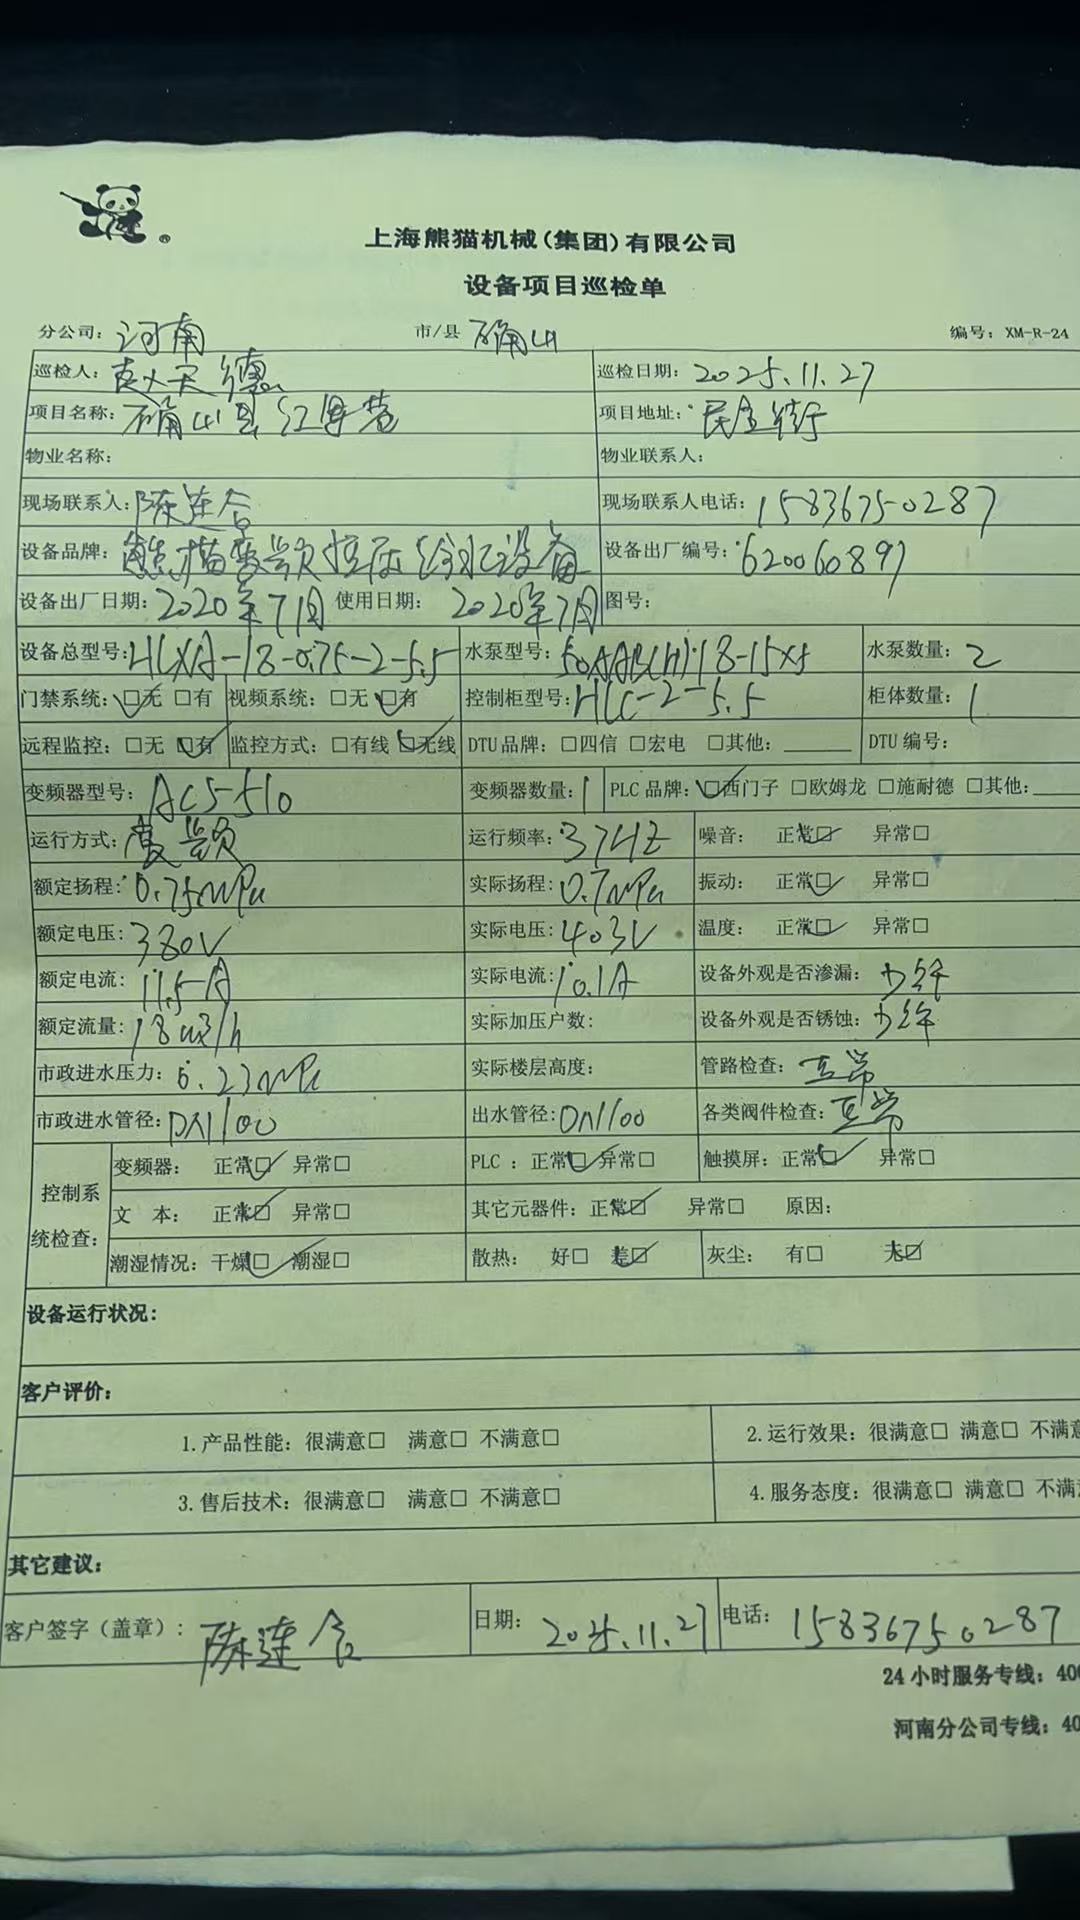 ®
上海熊猫机械(集团)有限公司
设备项目巡检单
分公司：河南 市/县 确山 编号：XM-R-24
巡检人：赵天德 巡检日期：2025.11.27
项目名称：确山县江 项目地址：民主街
物业名称： 物业联系人：
现场联系人：陈连合 现场联系人电话：15836750287
设备品牌：熊猫变频恒压给水设备 设备出厂编号：620060897
设备出厂日期：2020年7月 使用日期：2020年7月 图号：
设备总型号：HLXA-18-0.75-2-5.5 水泵型号：50AAB(H)18-15x5 水泵数量：2
门禁系统：☑无 □有 视频系统：□无 ☑有 控制柜型号：HLC-2-5.5 柜体数量：1
远程监控：□无 ☑有 监控方式：□有线 ☑无线 DTU品牌：□四信 □宏电 □其他：______ DTU编号：
变频器型号：ACS-510 变频器数量：1 PLC品牌：☑西门子 □欧姆龙 □施耐德 □其他：____
运行方式：变频 运行频率：37HZ 噪音： 正常☑ 异常□
额定扬程：0.75MPa 实际扬程：0.7MPa 振动： 正常☑ 异常□
额定电压：380V 实际电压：403V 温度： 正常☑ 异常□
额定电流：11.5A 实际电流：10.1A 设备外观是否渗漏：
额定流量：18m3/h 实际加压户数： 设备外观是否锈蚀：
市政进水压力：0.23MPa 实际楼层高度： 管路检查：正常
市政进水管径：DN100 出水管径：DN100 各类阀件检查：正常
控制系统检查：
变频器： 正常☑ 异常□ PLC ：正常☑ 异常□ 触摸屏：正常☑ 异常□
文 本： 正常☑ 异常□ 其它元器件：正常☑ 异常□ 原因：
潮湿情况：干燥☑ 潮湿□ 散热： 好□ 差☑ 灰尘： 有□ 无☑
设备运行状况：
客户评价：
1.产品性能：很满意□ 满意□ 不满意□ 2.运行效果：很满意□ 满意□ 不满意
3.售后技术：很满意□ 满意□ 不满意□ 4.服务态度：很满意□ 满意□ 不满
其它建议：
客户签字（盖章）：陈连合 日期：2025.11.27 电话：15836750287
24小时服务专线：400
河南分公司专线：40